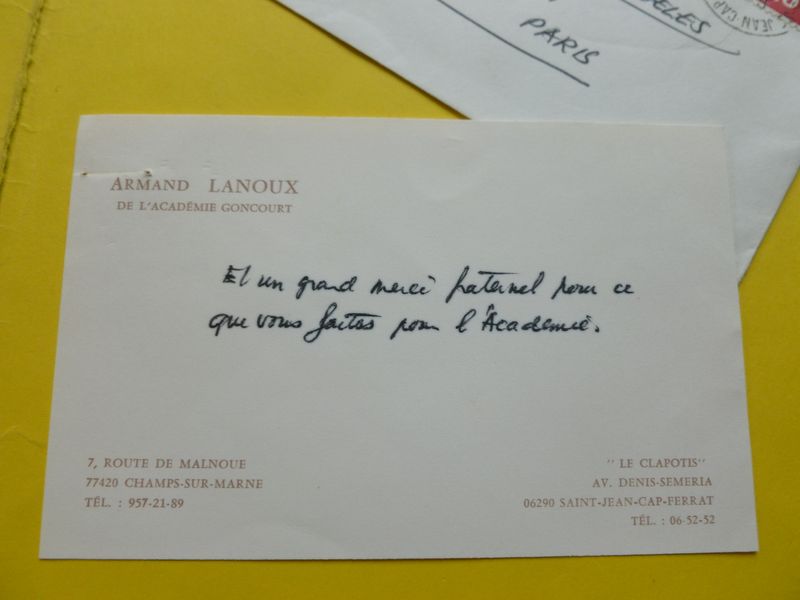 PARIS
JEAN-CAP
ARMAND LANOUX
DE L'ACADÉMIE GONCOURT
Et un grand merci fraternel pour ce
que vous faites pour l'Académie.
7, ROUTE DE MALNOUE
77420 CHAMPS-SUR-MARNE
TÉL. : 957-21-89
" LE CLAPOTIS"
AV. DENIS-SEMERIA
06290 SAINT-JEAN-CAP-FERRAT
TÉL. : 06-52-52